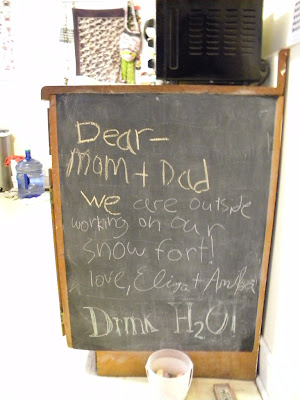 Dear-
Mom + Dad
We are outside
working on our
snow fort!
love, Eliza +
Drink H2O!